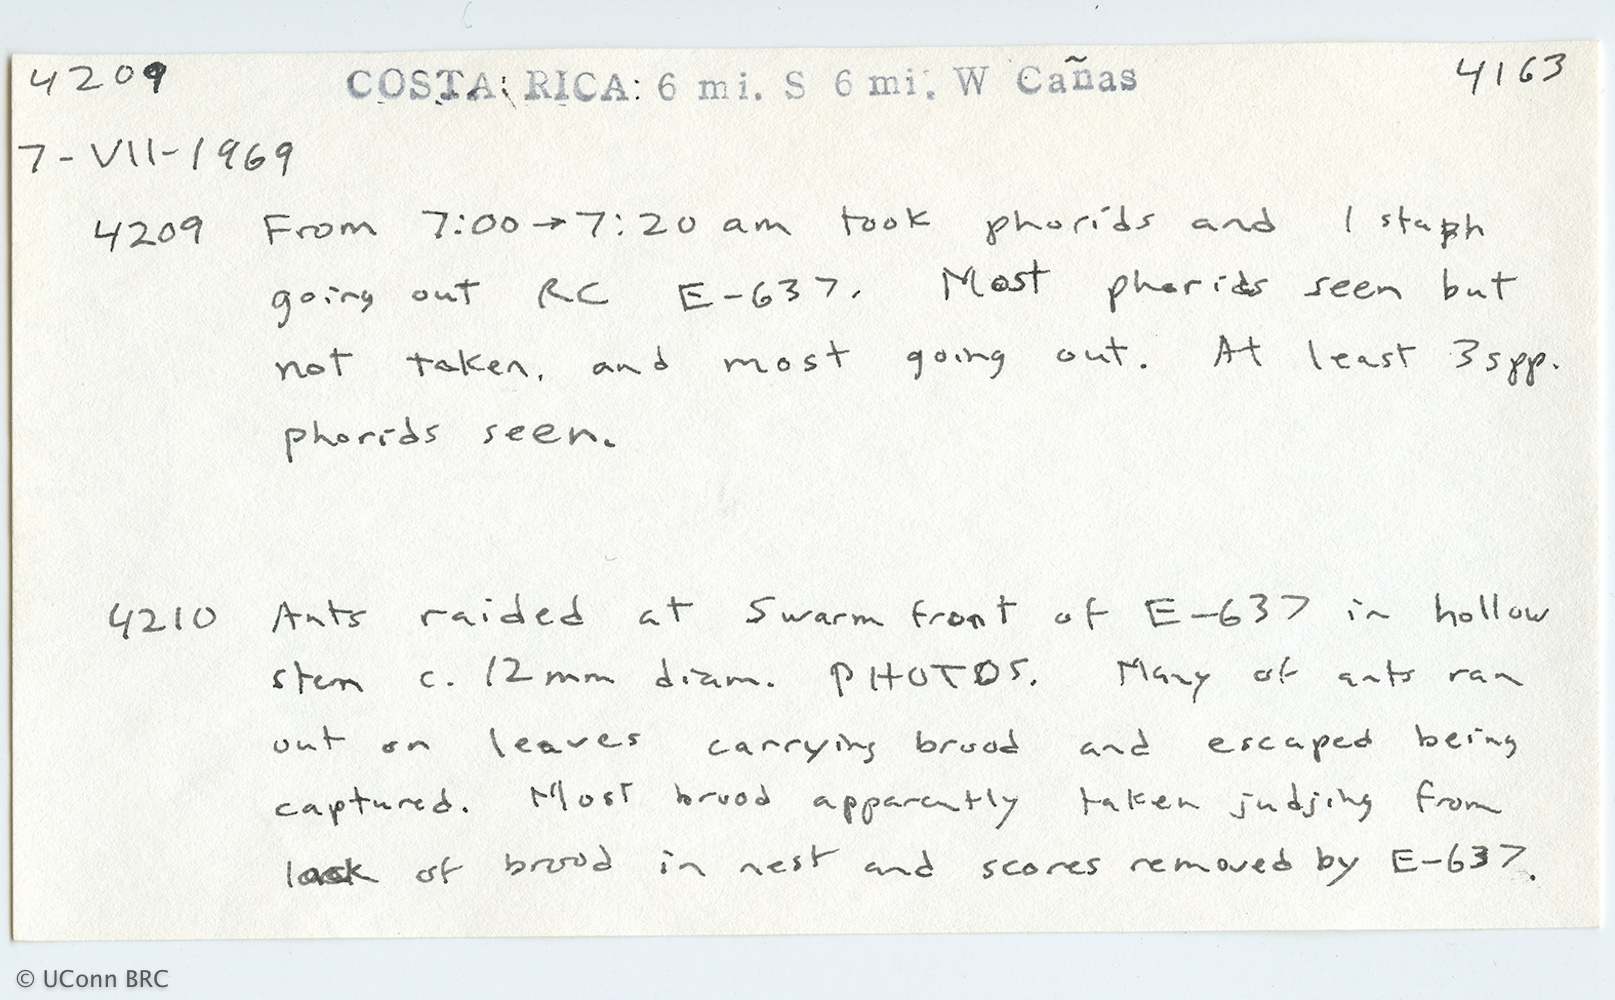 4209 COSTA RICA: 6 mi. S 6 mi. W Cañas 4163
7-VII-1969
4209 From 7:00→7:20 am took phorids and 1 staph
going out RC E-637. Most phorids seen but
not taken, and most going out. At least 3 spp.
phorids seen.
4210 Ants raided at swarm front of E-637 in hollow
stem c. 12 mm diam. PHOTOS. Many of ants ran
out on leaves carrying brood and escaped being
captured. Most brood apparently taken judjing from
lack of brood in nest and scores removed by E-637.
© UConn BRC